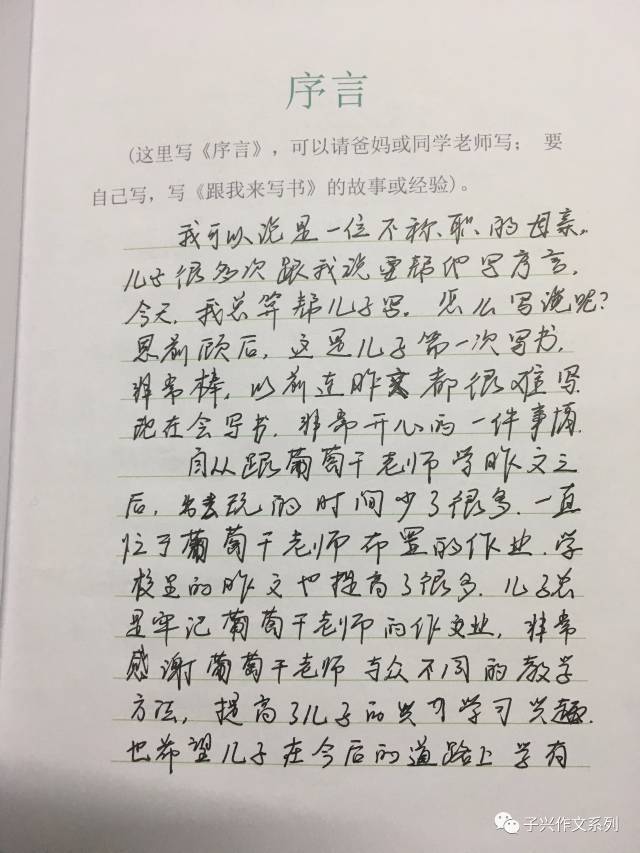 序言
(这里写《序言》，可以请爸妈或同学老师写； 要
自己写，写《跟我来写书》的故事或经验)。
我可以说是一位不称职的母亲。
儿子很多次跟我说要帮他写序言，
今天，我总算帮儿子写。怎么写说呢？
思前顾后，这是儿子第一次写书，
非常棒，以前连昨文都很难写
现在会写书，非常开心的一件事情
自从跟葡萄干老师学昨文之
后，出去玩的时间少了很多，一直
忙于葡萄干老师布置的作业，学
校里的昨文也提高了很多，儿子总
是牢记葡萄干老师的作业，非常
感谢葡萄干老师与众不同的教学
方法，提高了儿子的学习兴趣，
也希望儿子在今后的道路上学有
子兴作文系列